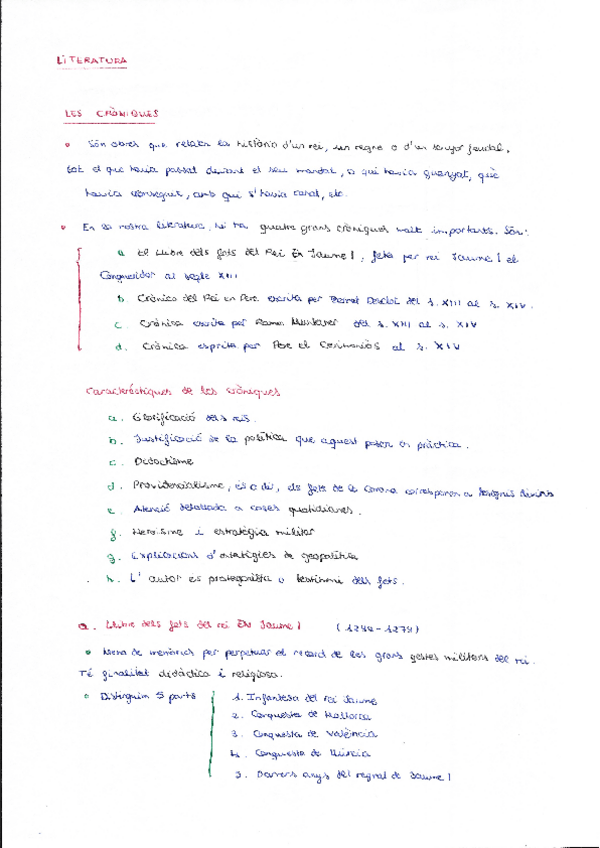 LITERATURA
LES CRÒNIQUES
• Són obres que relaten la història d'un rei, un regne o d'un senyor feudal,
tot el que havia passat durant el seu mandat, a qui havia guanyat, què
havia conseguit, amb qui s'havia casat, etc.
• En la nostra literatura, hi ha quatre grans cròniques molt importants. Són:
a. El Llibre dels fets del Rei En Jaume I, feta per rei Jaume I el
Conqueridor al segle XIII
b. Crònica del Rei en Pere escrita per Bernat Desclot del s. XIII al s. XIV.
c. Crònica escrita per Ramon Muntaner del s. XIII al s. XIV
d. Crònica escrita per Pere el Cerimoniós al s. XIV
Característiques de les cròniques
a. Glorificació dels reis.
b. Justificació de la política que aquest posen en pràctica.
c. Didactisme
d. Providencialisme, és a dir, els fets de la Corona corresponen a designis divins
e. Atenció detallada a coses quotidianes.
f. Heroisme i estratègia militar
g. Explicacions d'estratègies de geopolítica
h. L'autor és protagonista o testimoni dels fets.
a. Llibre dels fets del rei En Jaume I (1244-1274)
• Mena de memòries per perpetuar el record de les grans gestes militars del rei.
Té finalitat didàctica i religiosa.
• Distingim 5 parts
1. Infantesa del rei Jaume
2. Conquesta de Mallorca
3. Conquesta de València
4. Conquesta de Múrcia
5. Darrers anys del regnat de Jaume I